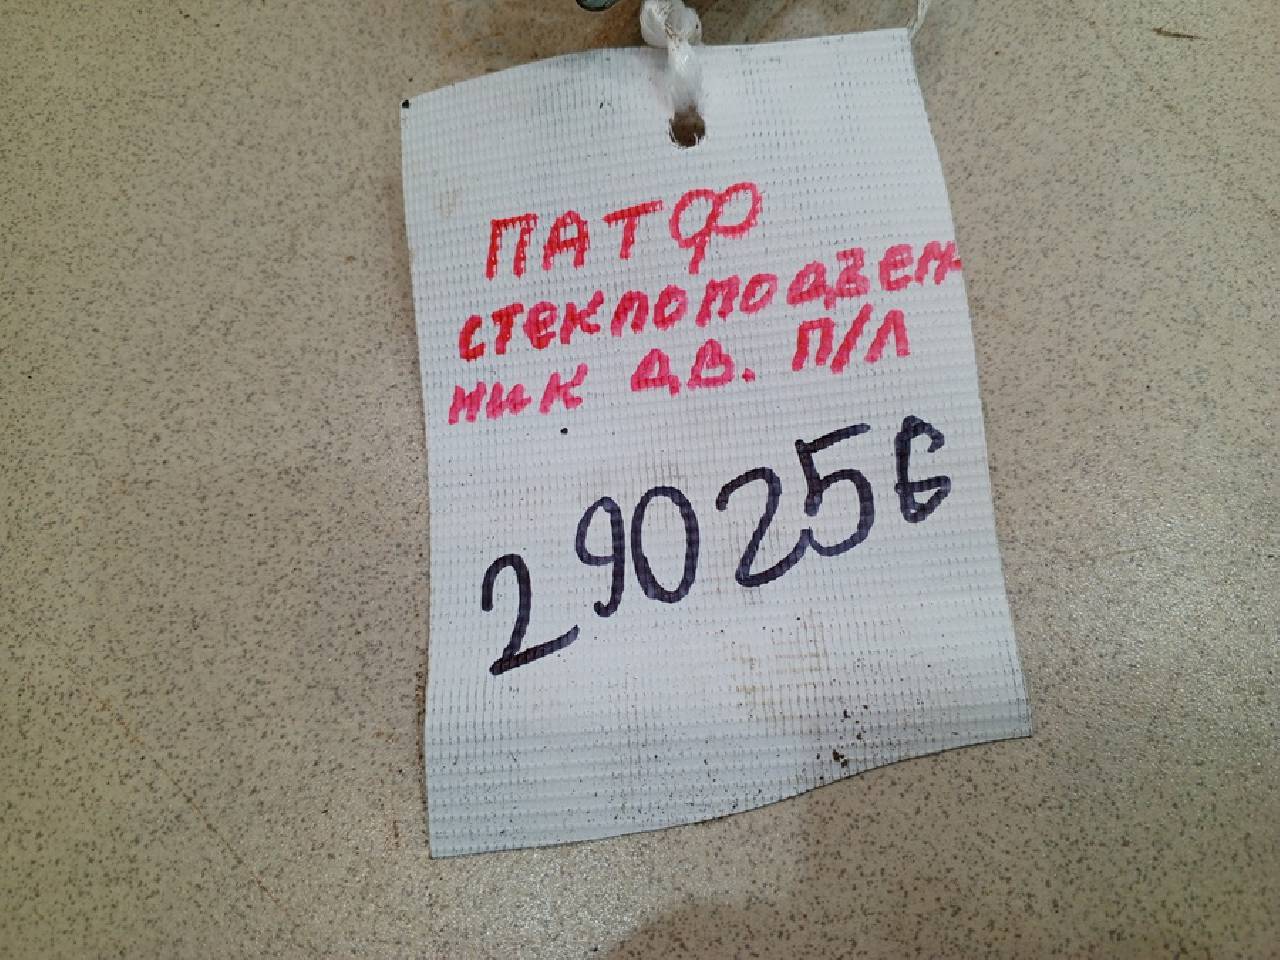 ПАТФ
стеклоподъем
ник дв. П/Л
290256